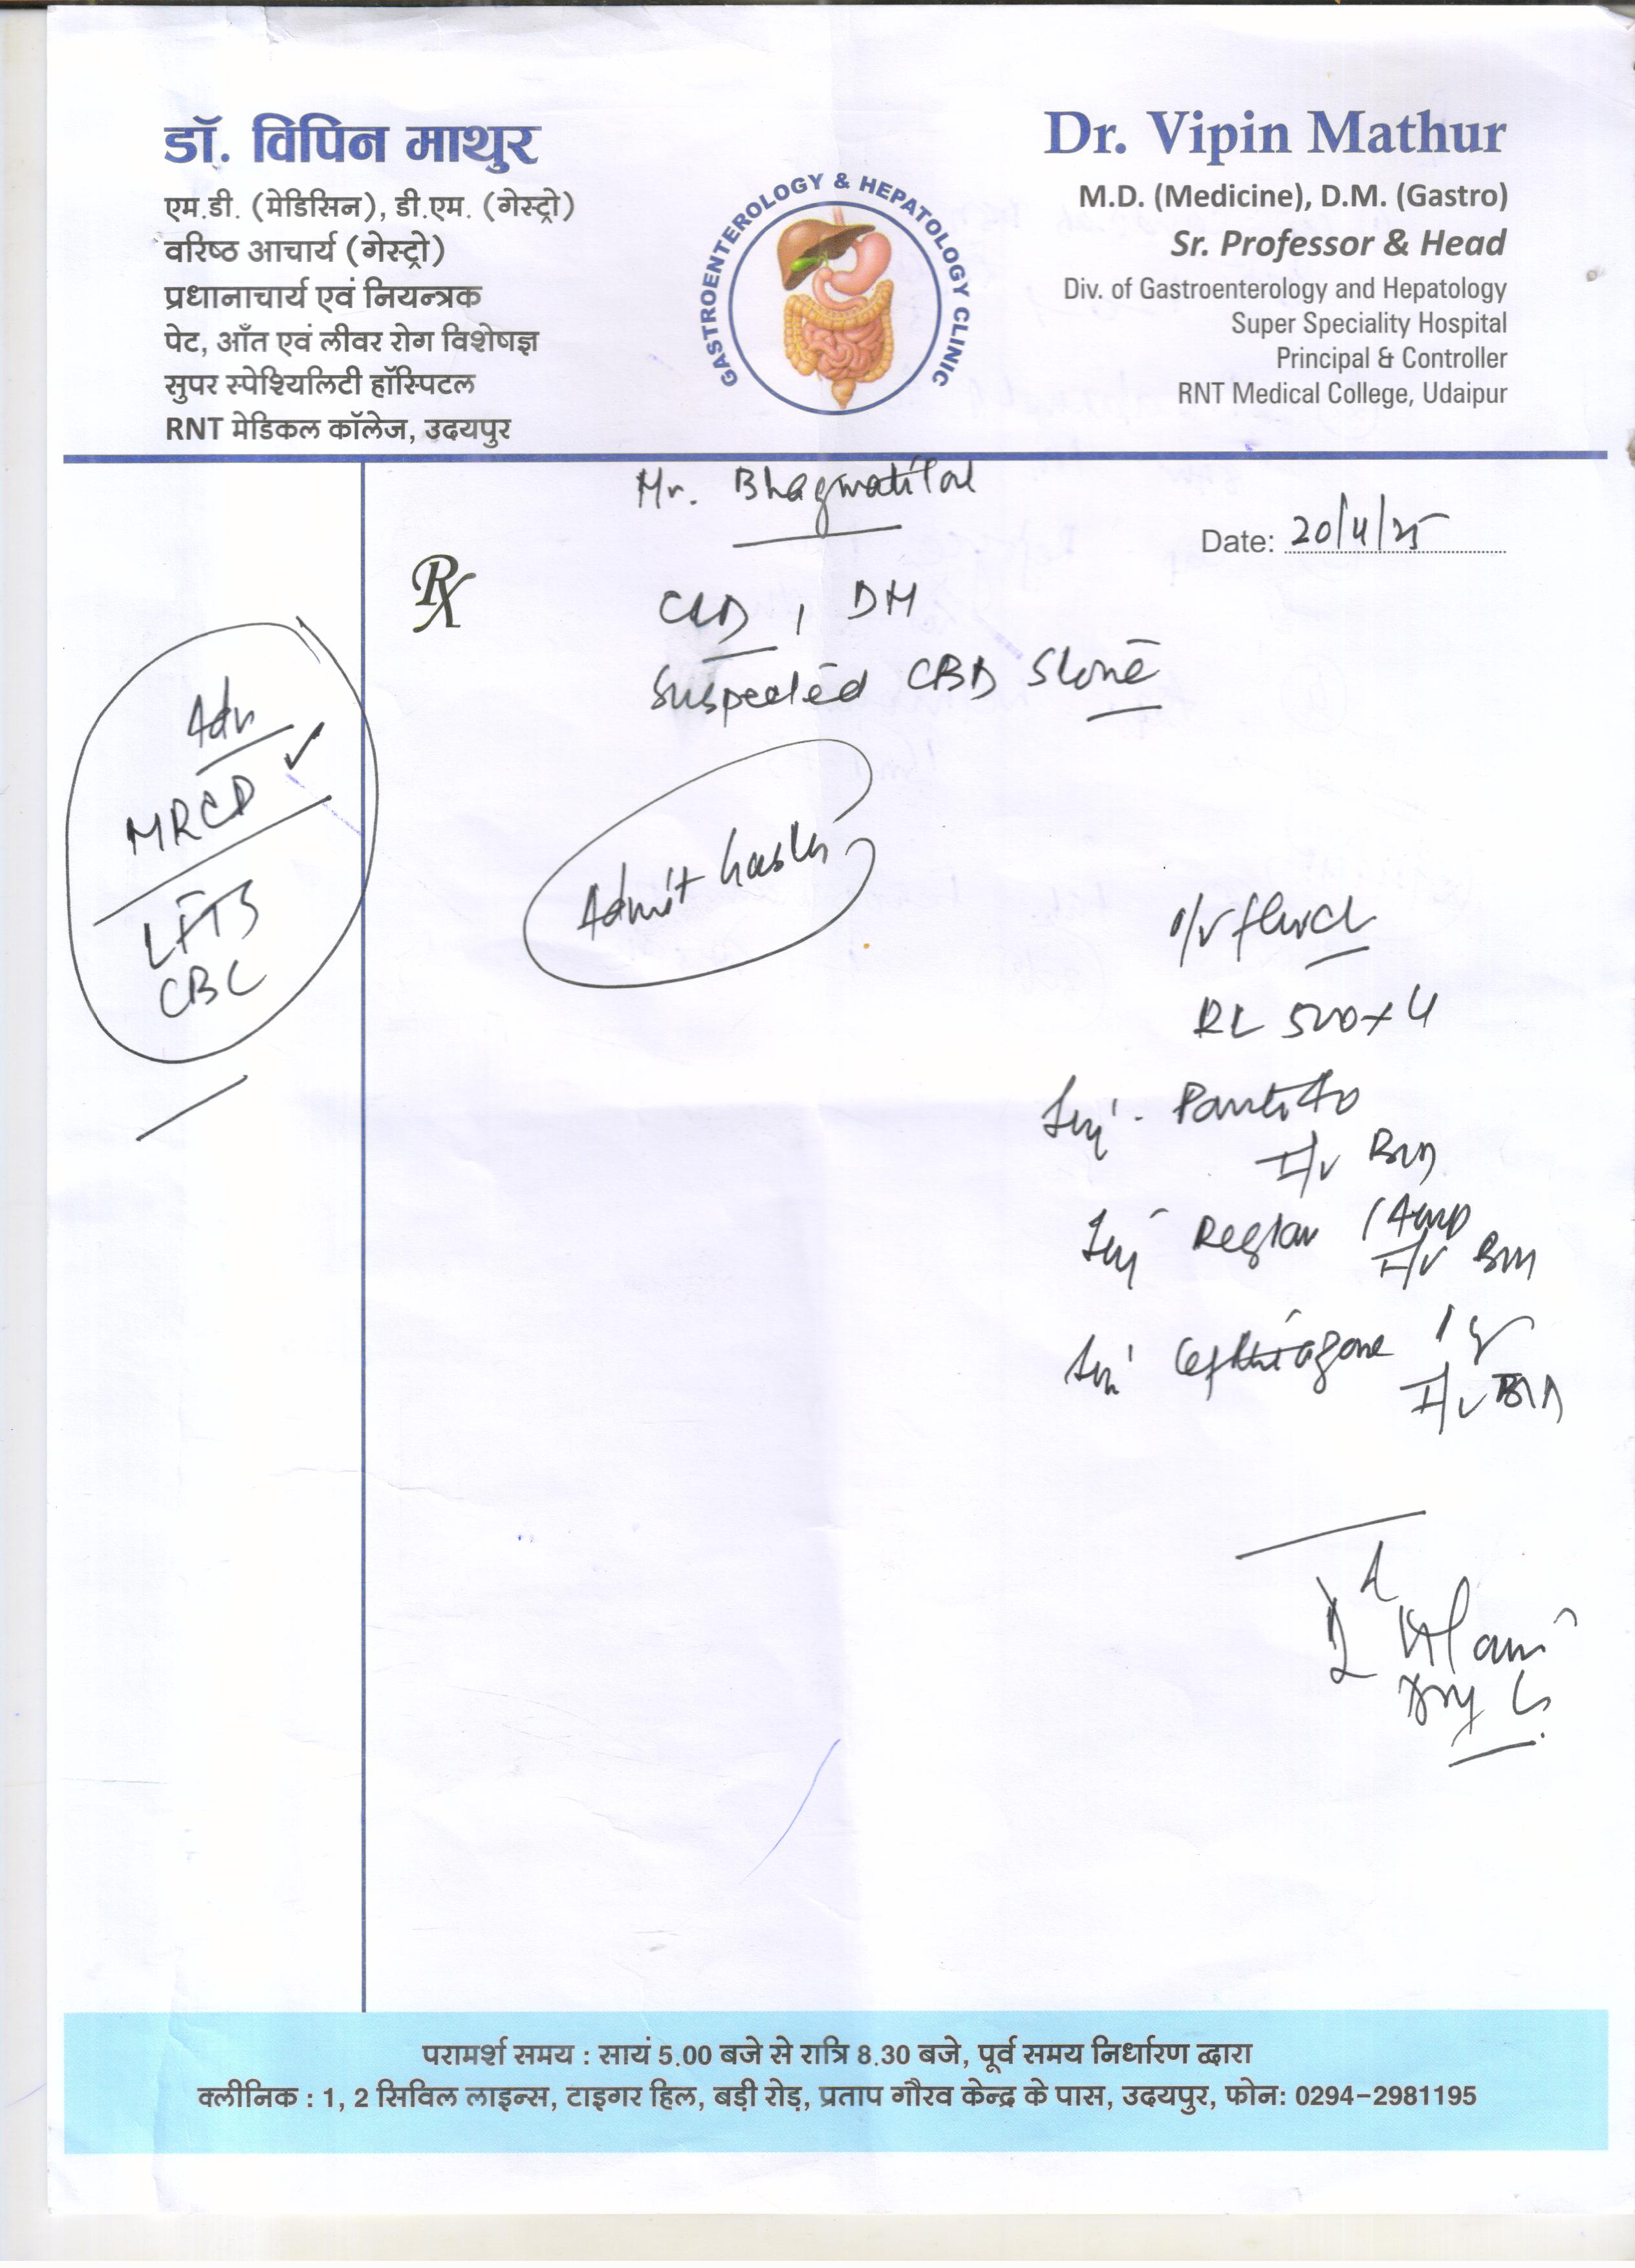 डॉ. विपिन माथुर
एम.डी. (मेडिसिन), डी.एम. (गेस्ट्रो)
वरिष्ठ आचार्य (गेस्ट्रो)
प्रधानाचार्य एवं नियन्त्रक
पेट, आँत एवं लीवर रोग विशेषज्ञ
सुपर स्पेश्यिलिटी हॉस्पिटल
RNT मेडिकल कॉलेज, उदयपुर
GASTROENTEROLOGY & HEPATOLOGY CLINIC
Dr. Vipin Mathur
M.D. (Medicine), D.M. (Gastro)
Sr. Professor & Head
Div. of Gastroenterology and Hepatology
Super Speciality Hospital
Principal & Controller
RNT Medical College, Udaipur
Mr. Bhagwatilal
Date: 20/4/25
Rx
DM
Suspected CBD Stone
Adv
MRCP
LFTS
CBC
Admit
I/v fluid
RL 500 x 4
Inj. Panto 40
I/v BD
Inj Reglan 1 Amp
I/v BD
Inj Ceftriazone 1 g
I/v BD
परामर्श समय : सायं 5.00 बजे से रात्रि 8.30 बजे, पूर्व समय निर्धारण द्वारा
क्लीनिक : 1, 2 सिविल लाइन्स, टाइगर हिल, बड़ी रोड़, प्रताप गौरव केन्द्र के पास, उदयपुर, फोन: 0294-2981195